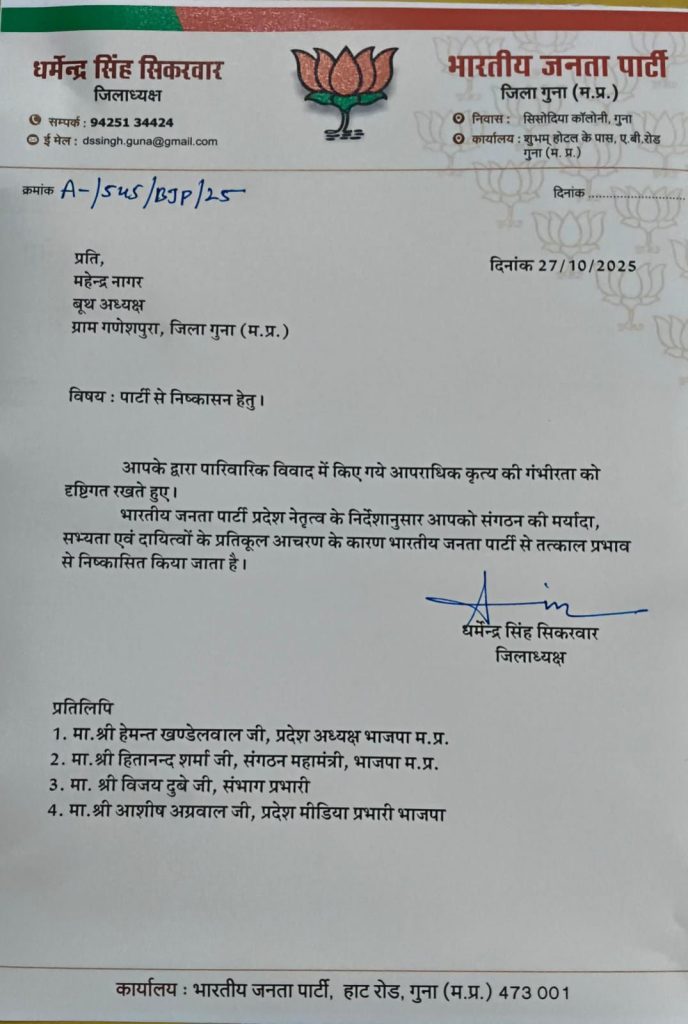 धर्मेन्द्र सिंह सिकरवार
जिलाध्यक्ष
सम्पर्क : 94251 34424
ई मेल : dssingh.guna@gmail.com
भारतीय जनता पार्टी
जिला गुना (म.प्र.)
निवास : सिसोदिया कॉलोनी, गुना
कार्यालय : शुभम् होटल के पास, ए.बी.रोड
गुना (म. प्र.)
क्रमांक A-/545/BJP/25
दिनांक ........................
प्रति,
दिनांक 27/10/2025
महेन्द्र नागर
बूथ अध्यक्ष
ग्राम गणेशपुरा, जिला गुना (म.प्र.)
विषय : पार्टी से निष्कासन हेतु।
आपके द्वारा पारिवारिक विवाद में किए गये आपराधिक कृत्य की गंभीरता को
दृष्टिगत रखते हुए।
भारतीय जनता पार्टी प्रदेश नेतृत्व के निर्देशानुसार आपको संगठन की मर्यादा,
सभ्यता एवं दायित्वों के प्रतिकूल आचरण के कारण भारतीय जनता पार्टी से तत्काल प्रभाव
से निष्कासित किया जाता है।
धर्मेन्द्र सिंह सिकरवार
जिलाध्यक्ष
प्रतिलिपि
1. मा.श्री हेमन्त खण्डेलवाल जी, प्रदेश अध्यक्ष भाजपा म.प्र.
2. मा.श्री हितानन्द शर्मा जी, संगठन महामंत्री, भाजपा म.प्र.
3. मा. श्री विजय दुबे जी, संभाग प्रभारी
4. मा.श्री आशीष अग्रवाल जी, प्रदेश मीडिया प्रभारी भाजपा
कार्यालय : भारतीय जनता पार्टी, हाट रोड, गुना (म.प्र.) 473 001